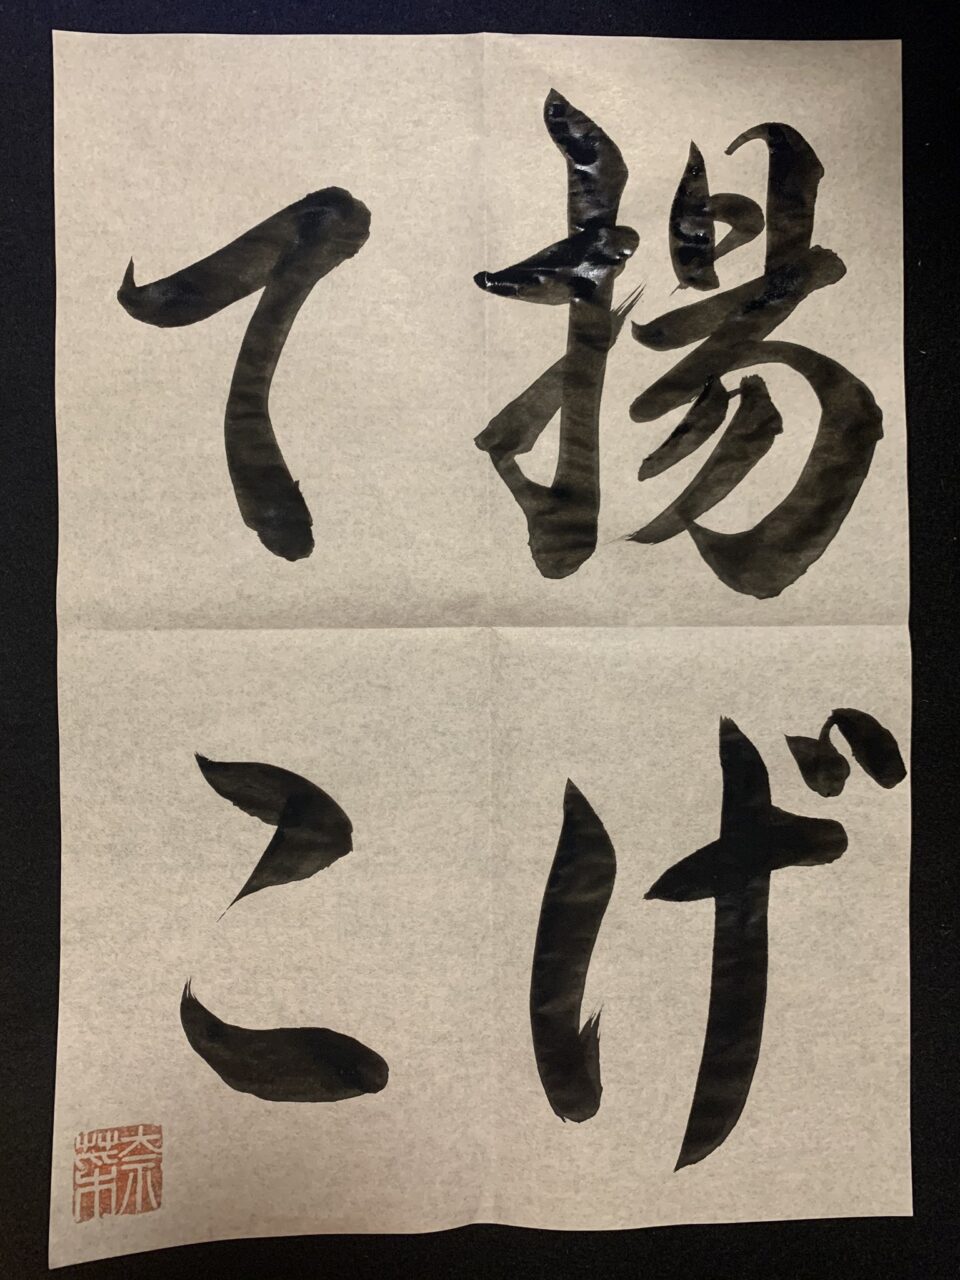 揚げ
てこ